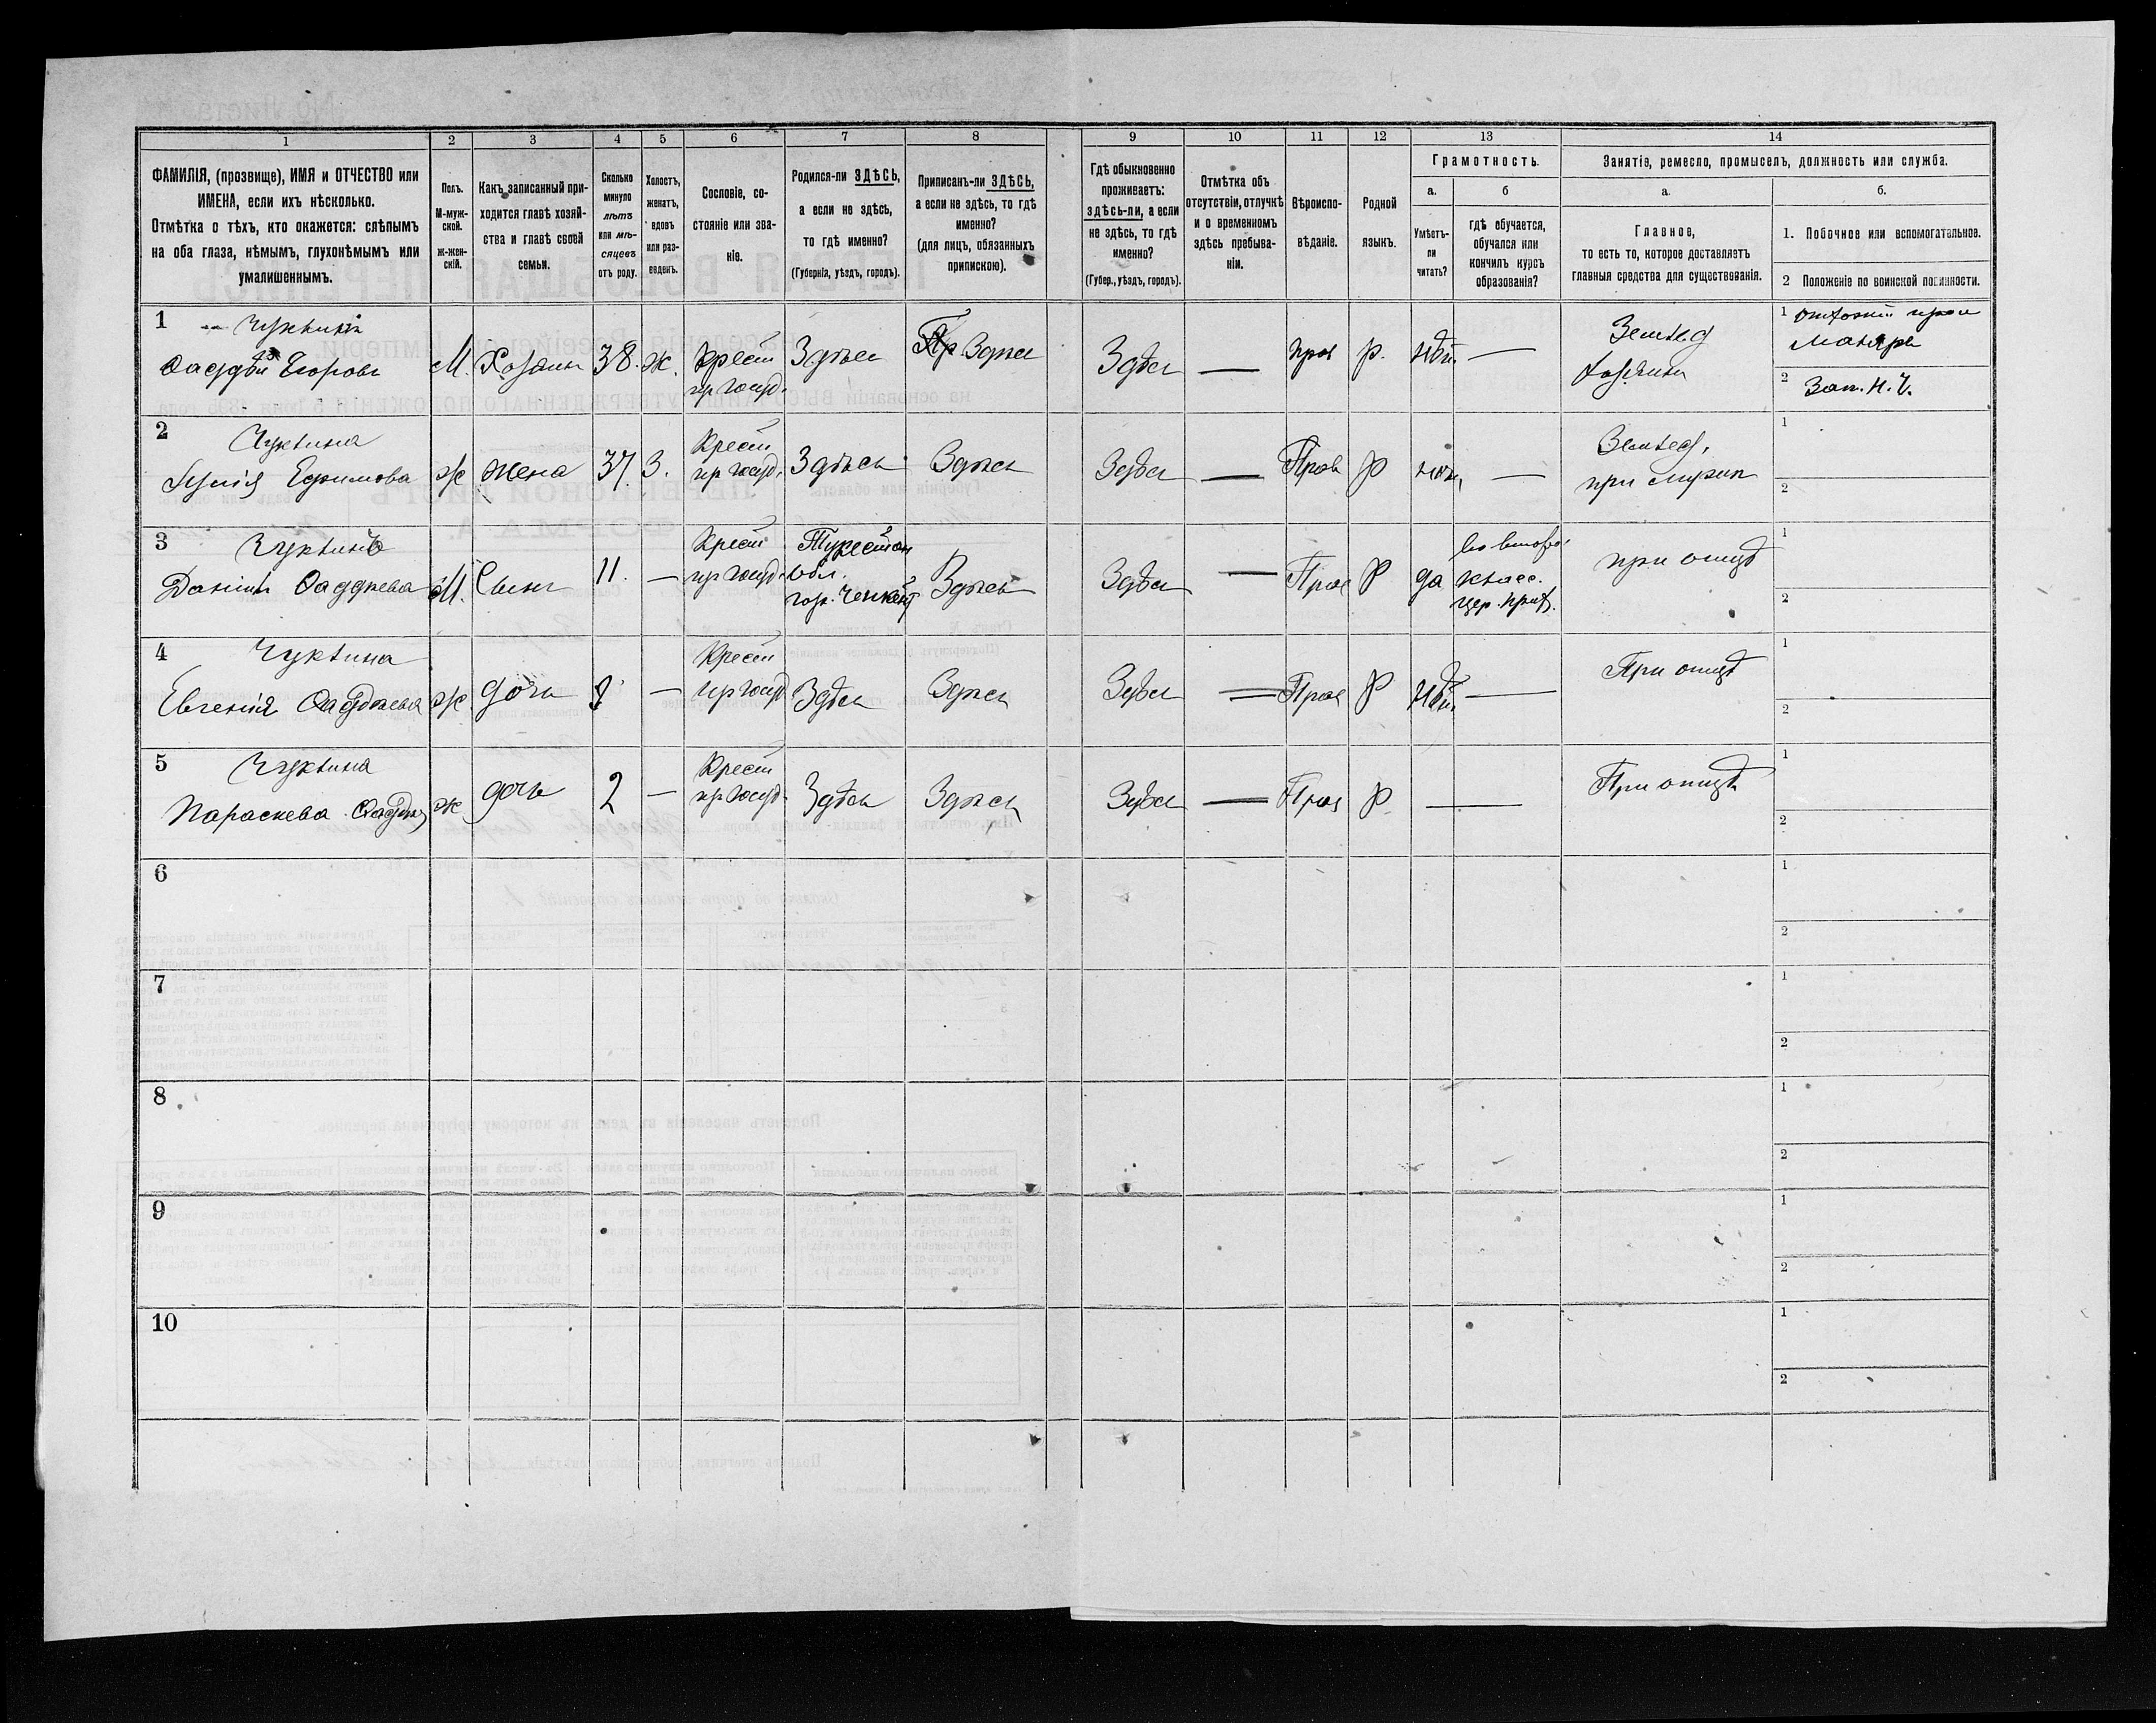 1 2 3 4 5 6 7 8 9 10 11 12 13 14
ФАМИЛІЯ, (прозвище), ИМЯ и ОТЧЕСТВО или
ИМЕНА, если ихъ нѣсколько.
Отмѣтка о тѣхъ, кто окажется: слѣпымъ
на оба глаза, нѣмымъ, глухонѣмымъ или
умалишеннымъ.
Полъ.
М-муж-
ской.
ж-жен-
скій.
Какъ записанный при-
ходится главѣ хозяй-
ства и главѣ своей
семьи.
Сколько
минуло
лѣтъ
или мѣ-
сяцевъ
отъ роду.
Холостъ,
женатъ,
вдовъ
или раз-
веденъ.
Сословіе, со-
стояніе или зва-
ніе.
Родился-ли ЗДѢСЬ,
а если не здѣсь,
то гдѣ именно?
(Губернія, уѣздъ, городъ).
Приписанъ-ли ЗДѢСЬ,
а если не здѣсь, то гдѣ
именно?
(для лицъ, обязанныхъ
припискою).
Гдѣ обыкновенно
проживаетъ:
здѣсь-ли, а если
не здѣсь, то гдѣ
именно?
(Губер., уѣздъ, городъ).
Отмѣтка объ
отсутствіи, отлучкѣ
и о временномъ
здѣсь пребыва-
ніи.
Вѣроиспо-
вѣданіе.
Родной
языкъ.
Грамотность.
а.
Умѣетъ-
ли
читать?
б
гдѣ обучается,
обучался или
кончилъ курсъ
образованія?
Занятіе, ремесло, промыселъ, должность или служба.
а.
Главное,
то есть то, которое доставляетъ
главныя средства для существованія.
б.
1. Побочное или вспомогательное.
2 Положеніе по воинской повинности.
1
Егоровъ
М. Хозяинъ 38. ж.
Крест
Здѣсь
Здѣсь
Здѣсь — Прав р. нѣт —
Землед
Хозяинъ
1
Маляръ
2 Зап. Н. Ч.
2 Чуктина
Ефимова ж жена 37. З.
Крест
Здѣсь Здѣсь Здѣсь — Прав р —
Землед.
при мужѣ
1
2
3
Даніилъ Фаддѣева М. Сынъ 11. —
Крест
Туркестан
обл.
гор. Чемкент
Здѣсь Здѣсь — Прав Р да
во второ
класс.
при отцѣ
1
2
4 Чуктина
Евгенія Фаддѣева ж дочь —
Крест
Здѣсь Здѣсь Здѣсь — Прав Р нѣт —
При отцѣ
1
2
5 Чуктина
Параскева Фаддѣ ж дочь 2 —
Крест
Здѣсь Здѣсь Здѣсь — Прав Р —
При отцѣ
1
2
6 1
2
7 1
2
8 1
2
9 1
2
10 1
2